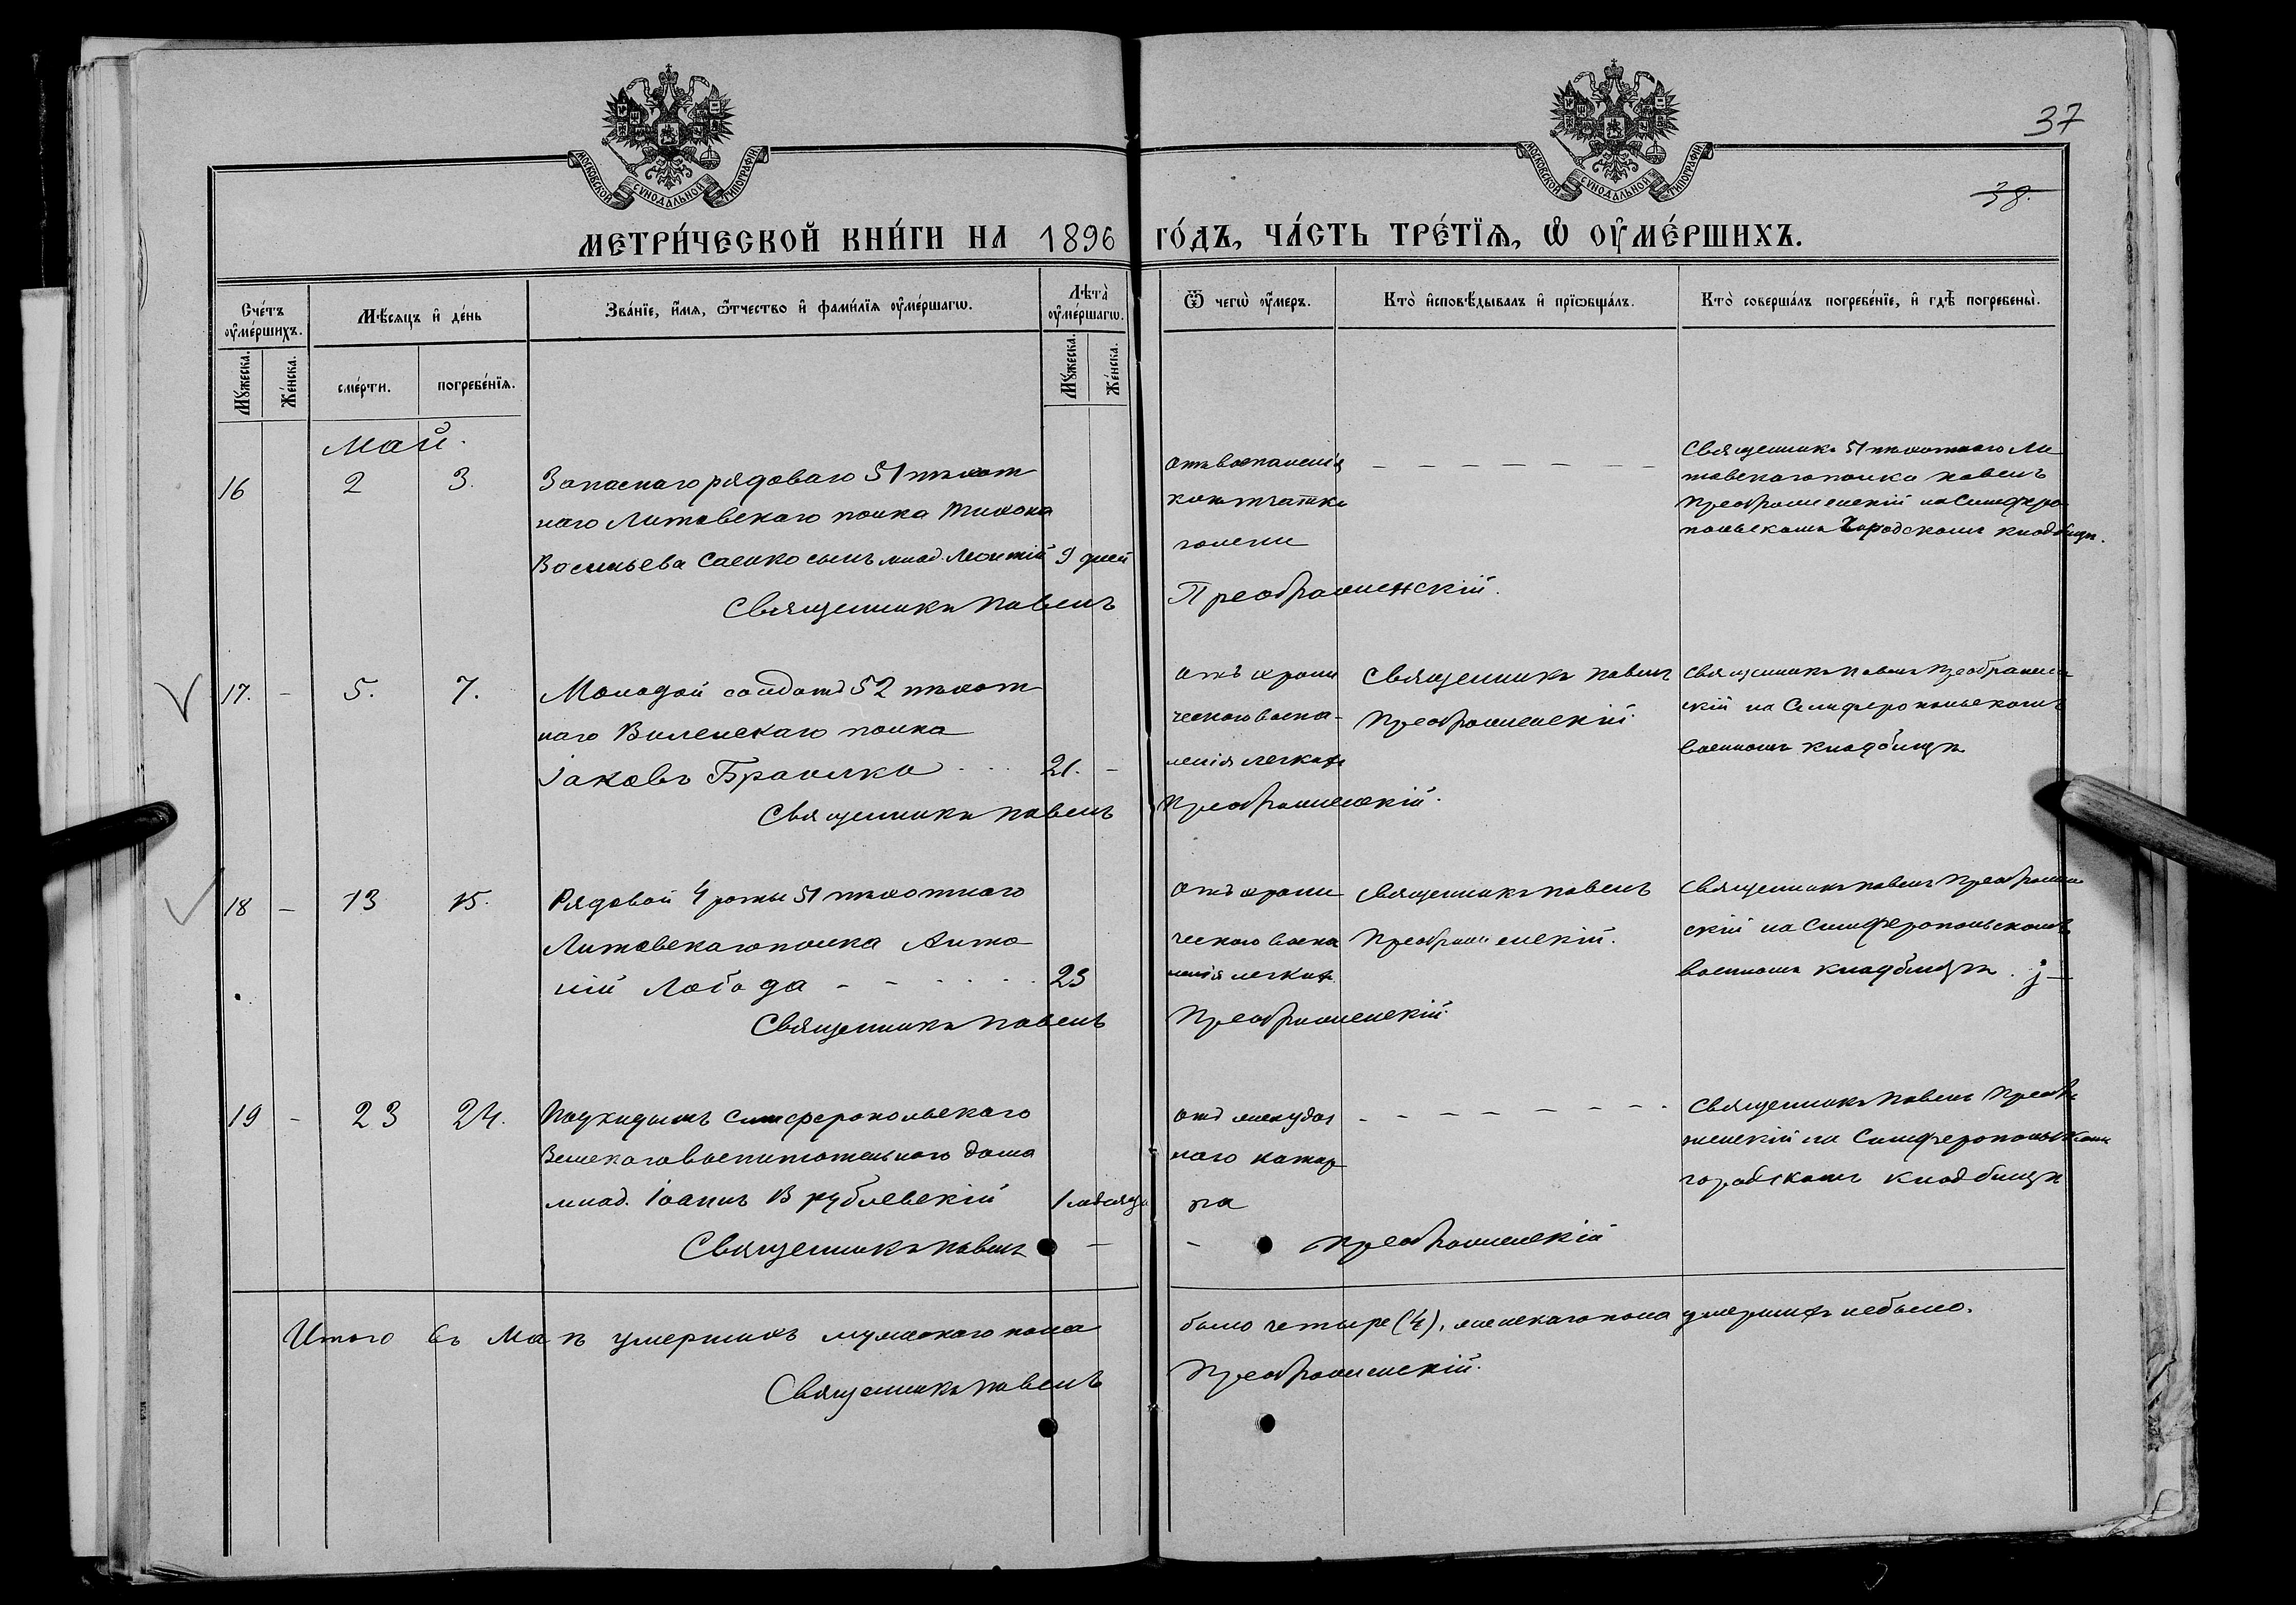 МОСКОВСКОЙ СѴНОДАЛЬНОЙ ТИПОГРАФІИ
МОСКОВСКОЙ СѴНОДАЛЬНОЙ ТИПОГРАФІИ
37
38.
МЕТРИ́ЧЕСКОЙ КНИ́ГИ НА 1896 ГО́ДЪ, ЧА́СТЬ ТРЕ́ТІѦ, Ѡ ОУ҆МЕ́РШИХЪ.
Сче́тъ оу҆ме́ршихъ.
Мѣ́сяцъ и҆ де́нь
Зва́нїе, и҆́мя, ѻ҆́тчество и҆ фами́лїя оу҆ме́ршагѡ.
Лѣта̀ оу҆ме́ршагѡ.
Ѿ чегѡ̀ оу҆́меръ.
Кто̀ и҆сповѣ́дывалъ и҆ прїѡбща́лъ.
Кто̀ соверша́лъ погребе́нїе, и҆ гдѣ̀ погребены̀.
Мꙋ́жеска.
Же́нска.
сме́рти.
погребе́нїя.
Мꙋ́жеска.
Же́нска.
Май.
16 2 3. Запаснаго рядоваго 51 пѣхот
наго Литовскаго полка Тихона
Васильева Саенко сынъ млад. Леонтій 9 дней
Священникъ Павелъ
Отъ воспаленія
клѣтчатки
голени
Преображенскій.
Священникъ 51 пѣхотнаго Ли
товскаго полка Павелъ
Преображенскій на Симферо
польскомъ Городскомъ кладбищѣ.
17. - 5. 7. Молодой солдатъ 52 пѣхот
наго Виленскаго полка
Іаковъ Браилко . . . 21. -
Священникъ Павелъ
Отъ хрони
ческаго воспа-
ленія легкихъ
Преображенскій.
Священникъ Павелъ
Преображенскій.
Священникъ Павелъ Преображен
скій на Симферопольскомъ
военномъ кладбищѣ
18 - 13 15. Рядовой 4 роты 51 пѣхотнаго
Литовскаго полка Анто
ній Лобода - - . . . . 23
Священникъ Павелъ
Отъ хрони
ческаго воспа
ленія легкихъ
Преображенскій.
Священникъ Павелъ
Преображенскій.
Священникъ Павелъ Преображен
скій на Симферопольскомъ
военномъ кладбищѣ.
19 - 23 24. Подкидышъ Симферопольскаго
Земскаго воспитательнаго дома
млад. Іоаннъ Врублевскій 1 мѣсяца
Священникъ Павелъ -
Отъ желудоч
наго катар
ра
- Преображенскій
Священникъ Павелъ Преобра
женскій на Симферопольскомъ
городскомъ кладбищѣ
Итого въ Маѣ умершихъ мужскаго пола
было четыре (4), женскаго пола умершихъ небыло.
Священникъ Павелъ
Преображенскій.